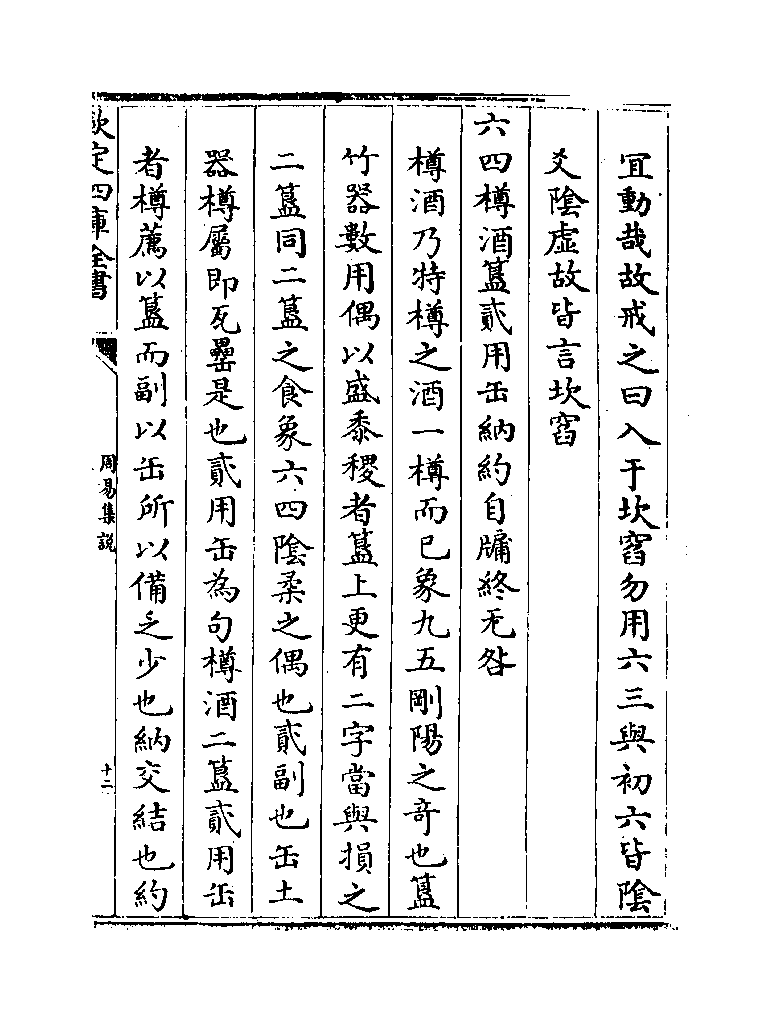 宜動哉故戒之曰入于坎窞勿用六三與初六皆陰
爻陰虛故皆言坎窞
六四樽酒簋貳用缶納約自牖終无咎
樽酒乃特樽之酒一樽而已象九五剛陽之奇也簋
竹器數用偶以盛黍稷者簋上更有二字當與損之
二簋同二簋之食象六四陰柔之偶也貳副也缶土
器樽屬即瓦罍是也貳用缶為句樽酒二簋貳用缶
者樽薦以簋而副以缶所以備乏少也納交結也約
欽定四庫全書
周易集說
十二